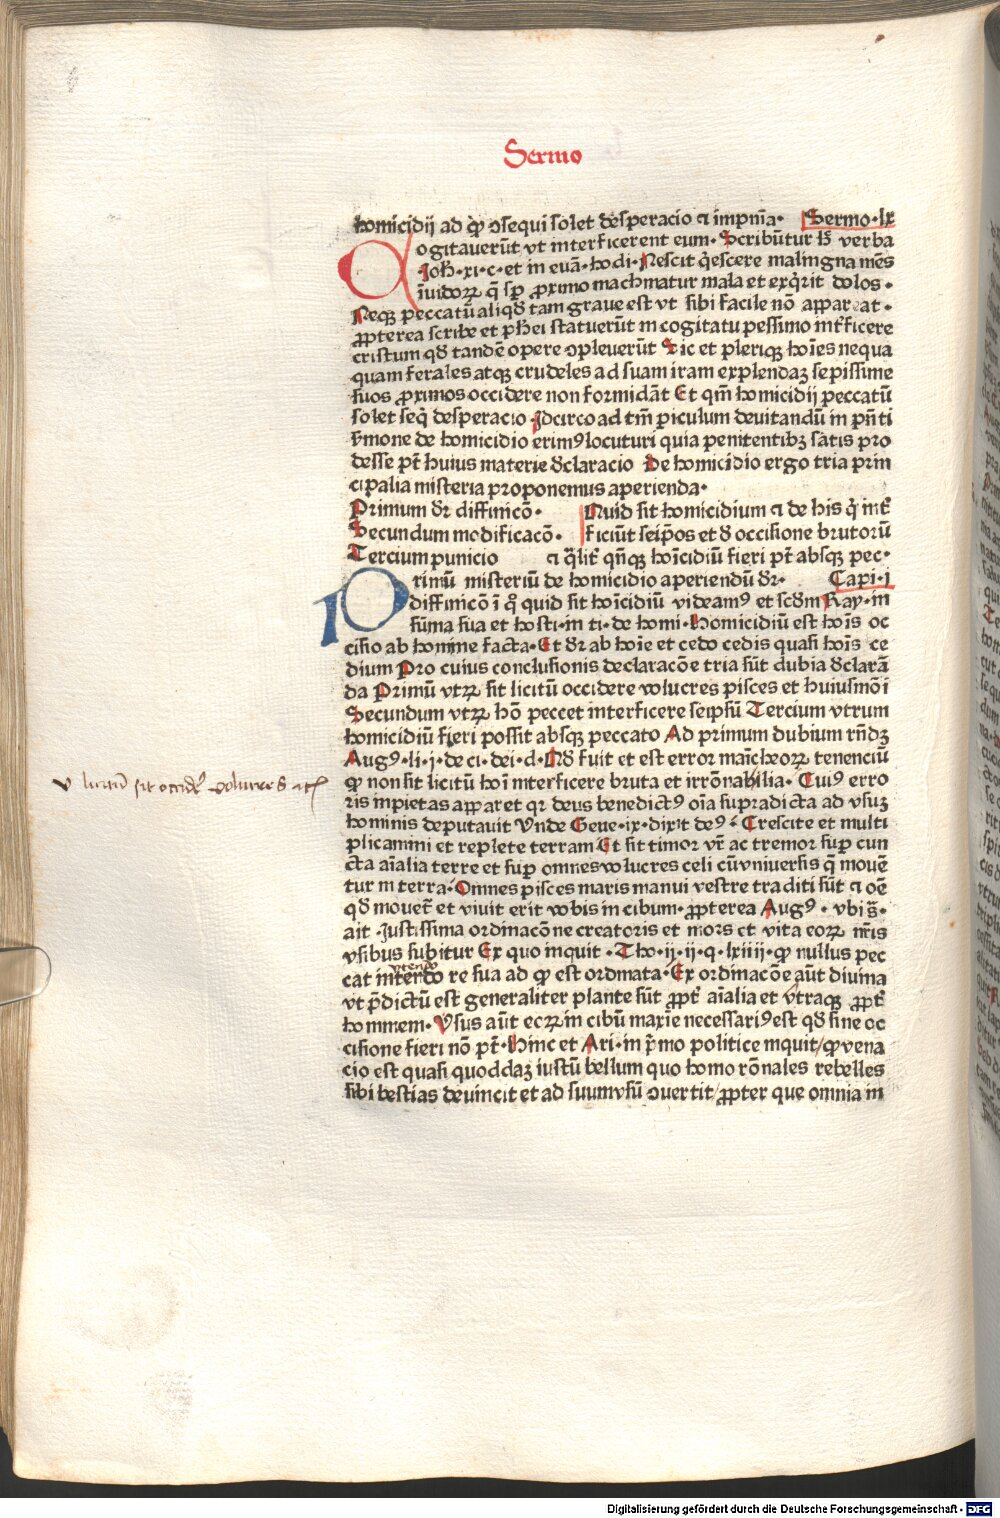 Sermo
homicidij ad qꝫ ɔsequi solet desperacio ⁊ impnı̄a· Sermo·lx
Cogitauerūt vt interficerent eum· Scribūtur h̄ verba
Joh̄·xi·c·et in euā·hodi·Nescit q̇escere malingna mēs
īuidoꝝ q̄ sꝑ ꝓximo machinatur mala et exq̇rit dolos·
Neqꝫ peccatū aliqd̄ tam graue est vt sibi facile nō appareat·
ꝓpterea scribe et ph̄ei statuerūt in cogitatu pessimo īt̄ficere
cristum qd̄ tandē opere ɔpleuerūt Sic et pleriqꝫ hoı̄es nequa
quam ferales atqꝫ crudeles ad suam iram explendaꝫ sepissime
suos ꝓximos occidere non formidāt Et qm̄ homicidij peccatū
solet seq̇ desperacio Jdcirco ad tm̄ ꝑiculum deuitandū in pn̄ti
ẜmone de homicidio erimꝰ locuturi quia penitentibꝫ satis pro
desse pt̄ huius materie d̄claracio De homicidio ergo tria prin
cipalia misteria proponemus aperienda·
Primum dr̄ diffinicō· Quid sit homicidium ⁊ de his q̇ int̄
Secundum modificacō· ficiūt seip̄os et d̄ occisione brutorū
Tercium punicio ⁊ q̄lit̄ qn̄qꝫ hoı̄cidiū fieri pt̄ absqꝫ pec·
Primū misteriū de homicidio aperiendū dr̄· Capi·j
diffinicō ī q̊ quid sit hoı̄cidiū videamꝰ et scd̄m Ray·in
sūma sua et hosti·in ti·de homi·Homicidiū est hoı̄s oc
cisio ab homine facta·Et dr̄ ab hoı̄e et cedo cedis quasi hoı̄s ce
dium Pro cuius conclusionis declaracōe tria sūt dubia d̄clarā
da Primū vtꝝ sit licitū occidere volucres pisces et huiusmōi
Secundum vtꝝ hō peccet interficere seipsū Tercium vtrum
homicidiū fieri possit absqꝫ peccato Ad primum dubium rn̄dꝫ
Augꝰ·li·j·de ci·dei·d·Qd̄ fuit et est error maı̄cheoꝝ tenenciū
ꝙ non sit licitū hoı̄ interficere bruta et irrōnabilia·Cuiꝰ erro
ris impietas apparet qr deus benedictꝰ oı̄a supradicta ad vsuꝫ
hominis deputauit Vnde Gene·ix·dixit deꝰ Crescite et multi
plicamini et replete terram Et sit timor vr̄ ac tremor suꝑ cun
cta aı̄alia terre et suꝑ omnes volucres celi cū vniuersis q̄ mouē
tur in terra Omnes pisces maris manui vestre traditi sūt ⁊ oē
qd̄ mouet̄ et viuit erit vobis in cibum·ꝓpterea Augꝰ·vbi s̄·
ait·Justissima ordinacōne creatoris et mors et vita eoꝝ nr̄is
vsibus subitur Ex quo inquit·Tho·ij·ij·q·lxiiij·ꝙ nullus pec
vtendo
cat intendo re sua ad ꝙ est ordinata·Ex ordinacōe aūt diuina
vt p̄dictū est generaliter plante sūt ꝓpt̄ aı̄alia et vtraqꝫ ꝓpt̄
hominem·Vsus aūt eoꝝ in cibū maxı̄e necessariꝰ est qd̄ sine oc
cisione fieri nō pt̄·Hinc et Ari·in p̄mo politice inquit/ꝙ vena
cio est quasi quoddaꝫ iustū bellum quo homo rōnales rebelles
sibi bestias deuincit et ad suum vsū ɔuertit/ꝓpter que omnia in
v licitū sit occid̄e volucres etc̄
Digitalisierung gefördert durch die Deutsche Forschungsgemeinschaft - DFG